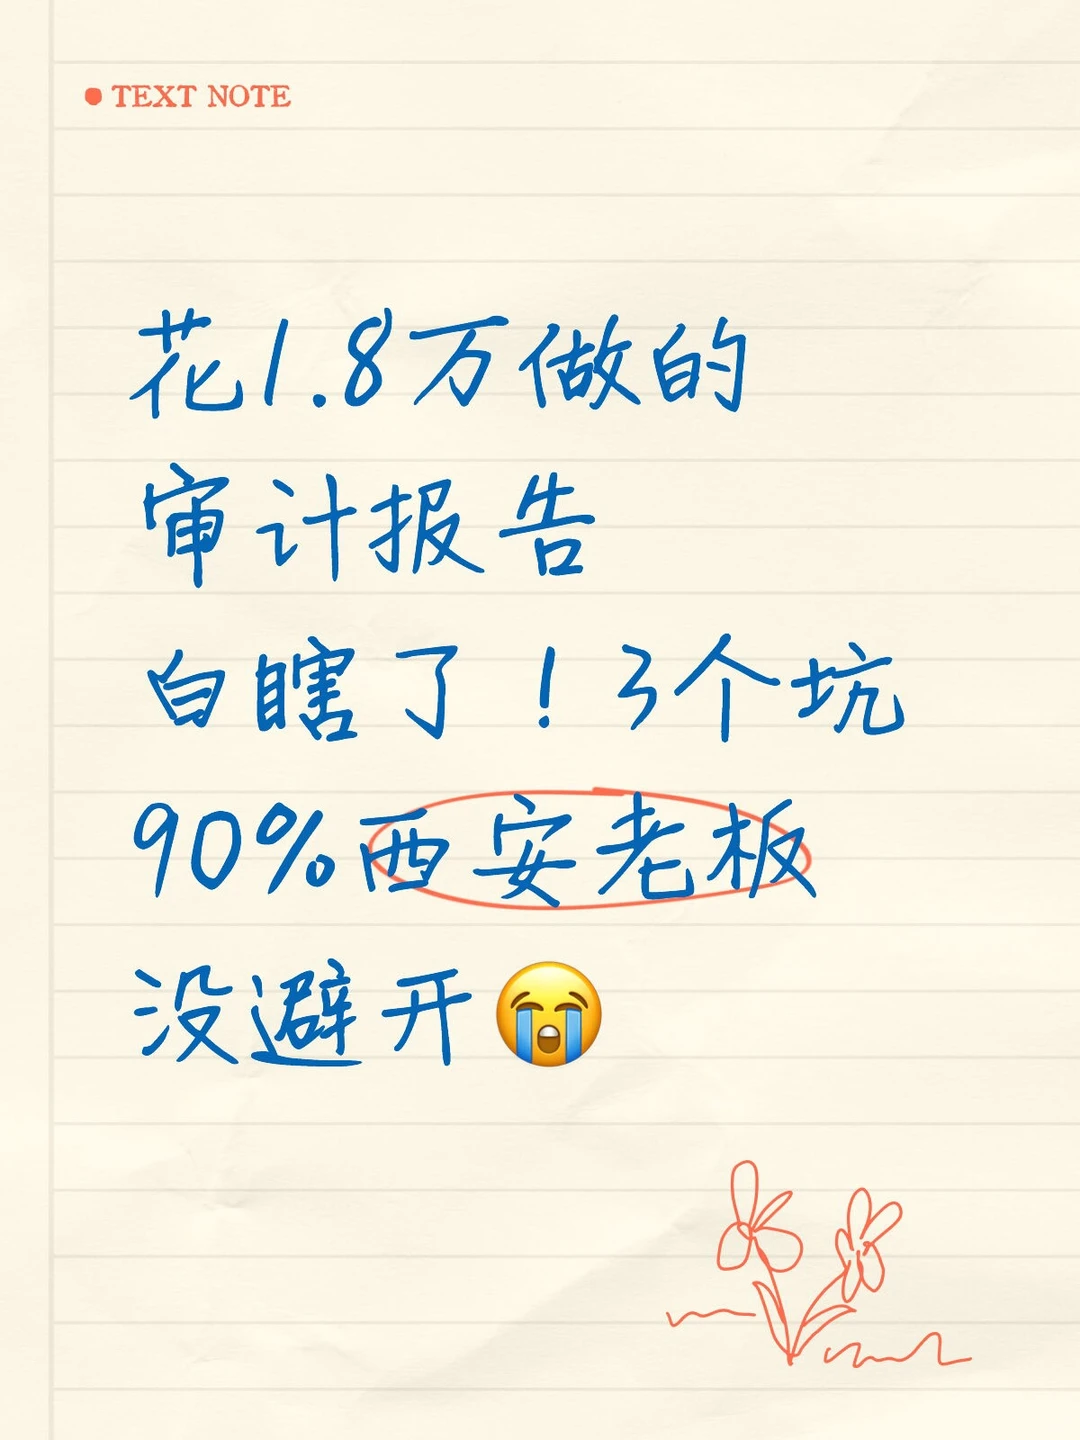 TEXT NOTE
花1.8万做的
审计报告
白瞎了！3个坑
90%西安老板
没避开😭